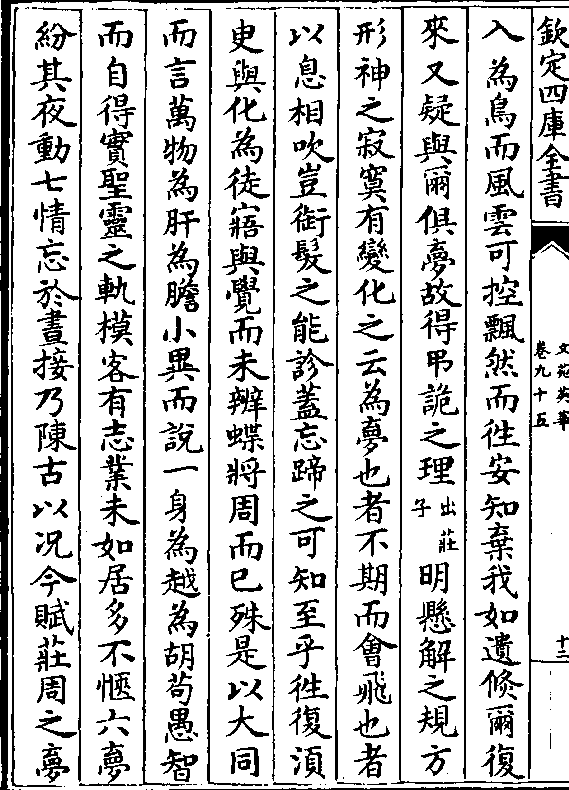 欽定四庫全書
文苑英華
卷九十五
十三
入為鳥而風雲可控飄然而徃安知棄我如遺倐爾復
來又疑與爾俱夢故得弔詭之理出莊子明懸解之規方
形神之寂寞有變化之云為夢也者不期而會飛也者
以息相吹豈銜髮之能診蓋忘蹄之可知至乎徃復湏
㕝與化為徒寤與覺而未辨蝶將周而已殊是以大同
而言萬物為肝為膽小異而說一身為越為胡苟愚智
而自得實聖靈之軌模客有志業未如居多不愜六夢
紛其夜動七情忘於晝接乃陳古以况今賦莊周之夢